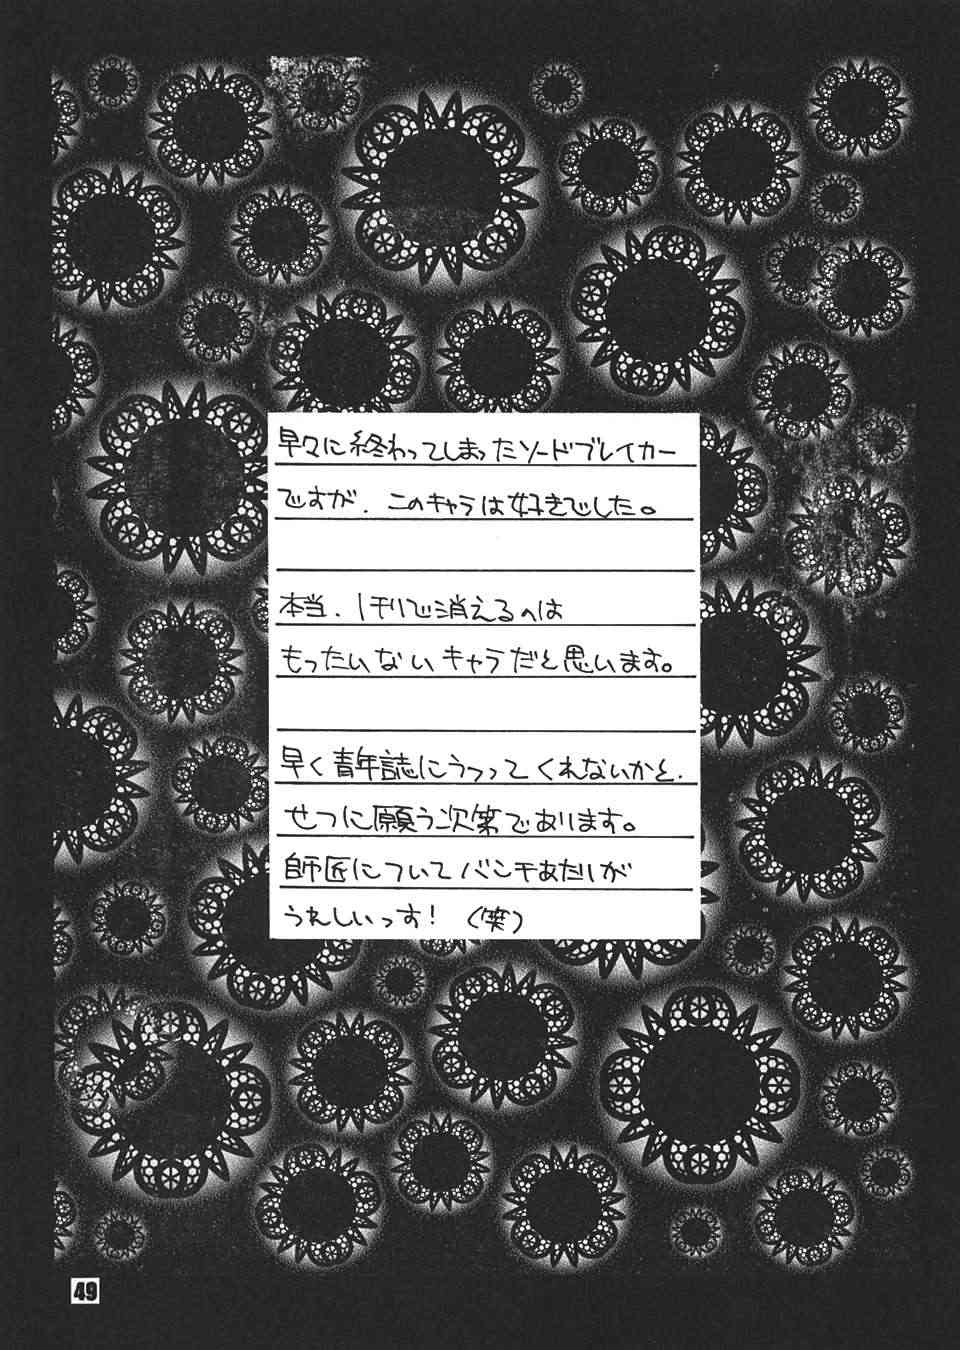 早々に終わってしまったソードブレイカー
ですが、このキャラは好きでした。
本当、1刊で消えるのは
もったいないキャラだと思います。
早く青年誌にうつってくれないかと、
せつに願う次第であります。
師匠についてバンチあたりが
うれしいっす！（笑）
49